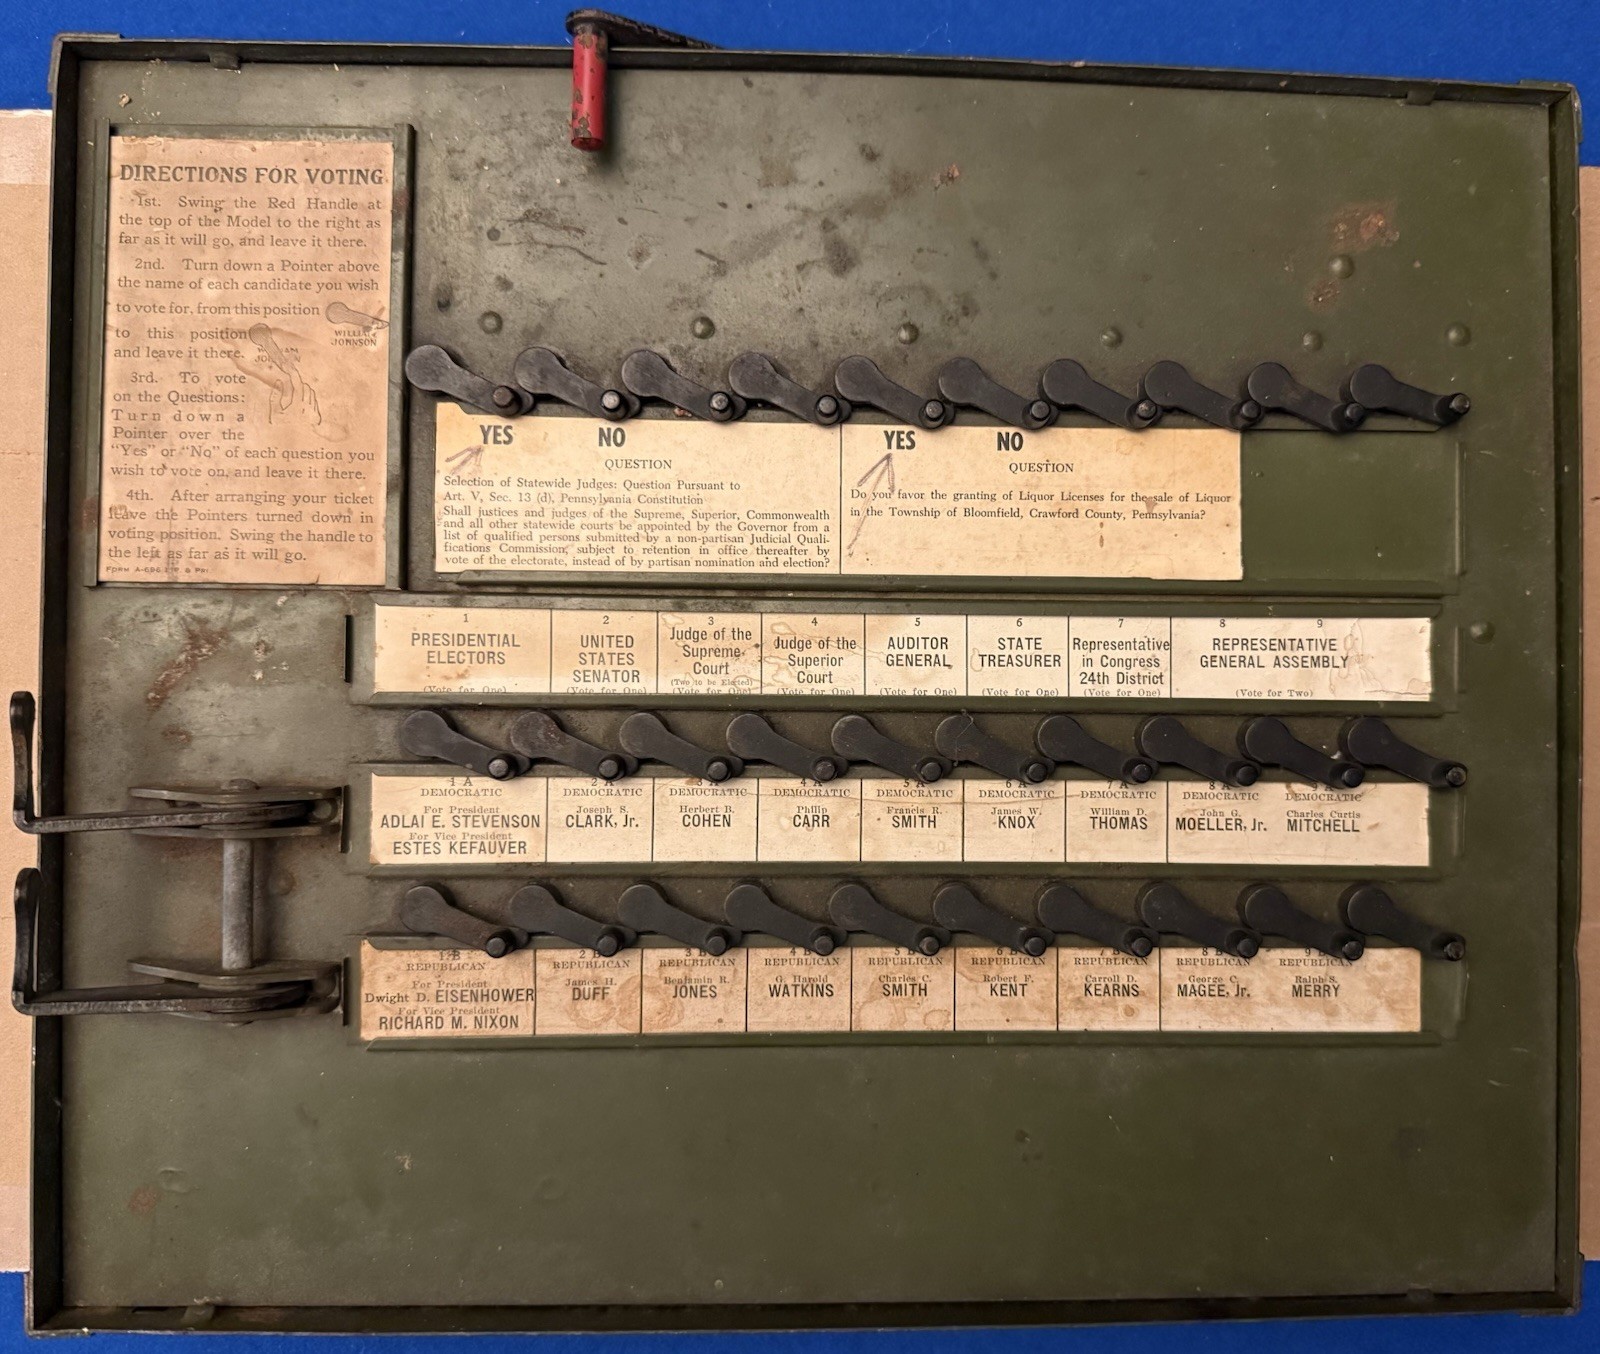 DIRECTIONS FOR VOTING
1st. Swing the Red Handle at
the top of the Model to the right as
far as it will go, and leave it there.
2nd. Turn down a Pointer above
the name of each candidate you wish
to vote for, from this position
WILLIAM
JOHNSON
to this position
and leave it there.
3rd. To vote
on the Questions:
Turn down a
Pointer over the
"Yes" or "No" of each question you
wish to vote on, and leave it there.
4th. After arranging your ticket
leave the Pointers turned down in
voting position. Swing the handle to
the left as far as it will go.
FORM A-696
YES NO
QUESTION
Selection of Statewide Judges: Question Pursuant to
Art. V, Sec. 13 (d), Pennsylvania Constitution
Shall justices and judges of the Supreme, Superior, Commonwealth
and all other statewide courts be appointed by the Governor from a
list of qualified persons submitted by a non-partisan Judicial Quali-
fications Commission, subject to retention in office thereafter by
vote of the electorate, instead of by partisan nomination and election?
YES NO
QUESTION
Do you favor the granting of Liquor Licenses for the sale of Liquor
in the Township of Bloomfield, Crawford County, Pennsylvania?
1
PRESIDENTIAL
ELECTORS
(Vote for One)
2
UNITED
STATES
SENATOR
(Vote for One)
3
Judge of the
Supreme
Court
(Two to be Elected)
(Vote for One)
4
Judge of the
Superior
Court
(Vote for One)
5
AUDITOR
GENERAL
(Vote for One)
6
STATE
TREASURER
(Vote for One)
7
Representative
in Congress
24th District
(Vote for One)
8 9
REPRESENTATIVE
GENERAL ASSEMBLY
(Vote for Two)
1 A
DEMOCRATIC
For President
ADLAI E. STEVENSON
For Vice President
ESTES KEFAUVER
2 A
DEMOCRATIC
Joseph S.
CLARK, Jr.
3 A
DEMOCRATIC
Herbert B.
COHEN
4 A
DEMOCRATIC
Philip
CARR
5 A
DEMOCRATIC
Francis R.
SMITH
6 A
DEMOCRATIC
James W.
KNOX
7 A
DEMOCRATIC
William D.
THOMAS
8 A
DEMOCRATIC
John G.
MOELLER, Jr.
9 A
DEMOCRATIC
Charles Curtis
MITCHELL
1 B
REPUBLICAN
For President
Dwight D. EISENHOWER
For Vice President
RICHARD M. NIXON
2 B
REPUBLICAN
James H.
DUFF
3 B
REPUBLICAN
Benjamin R.
JONES
4 B
REPUBLICAN
G. Harold
WATKINS
5 B
REPUBLICAN
Charles C.
SMITH
6 B
REPUBLICAN
Robert F.
KENT
7 B
REPUBLICAN
Carroll D.
KEARNS
8 B
REPUBLICAN
George C.
MAGEE, Jr.
9 B
REPUBLICAN
Ralph S.
MERRY